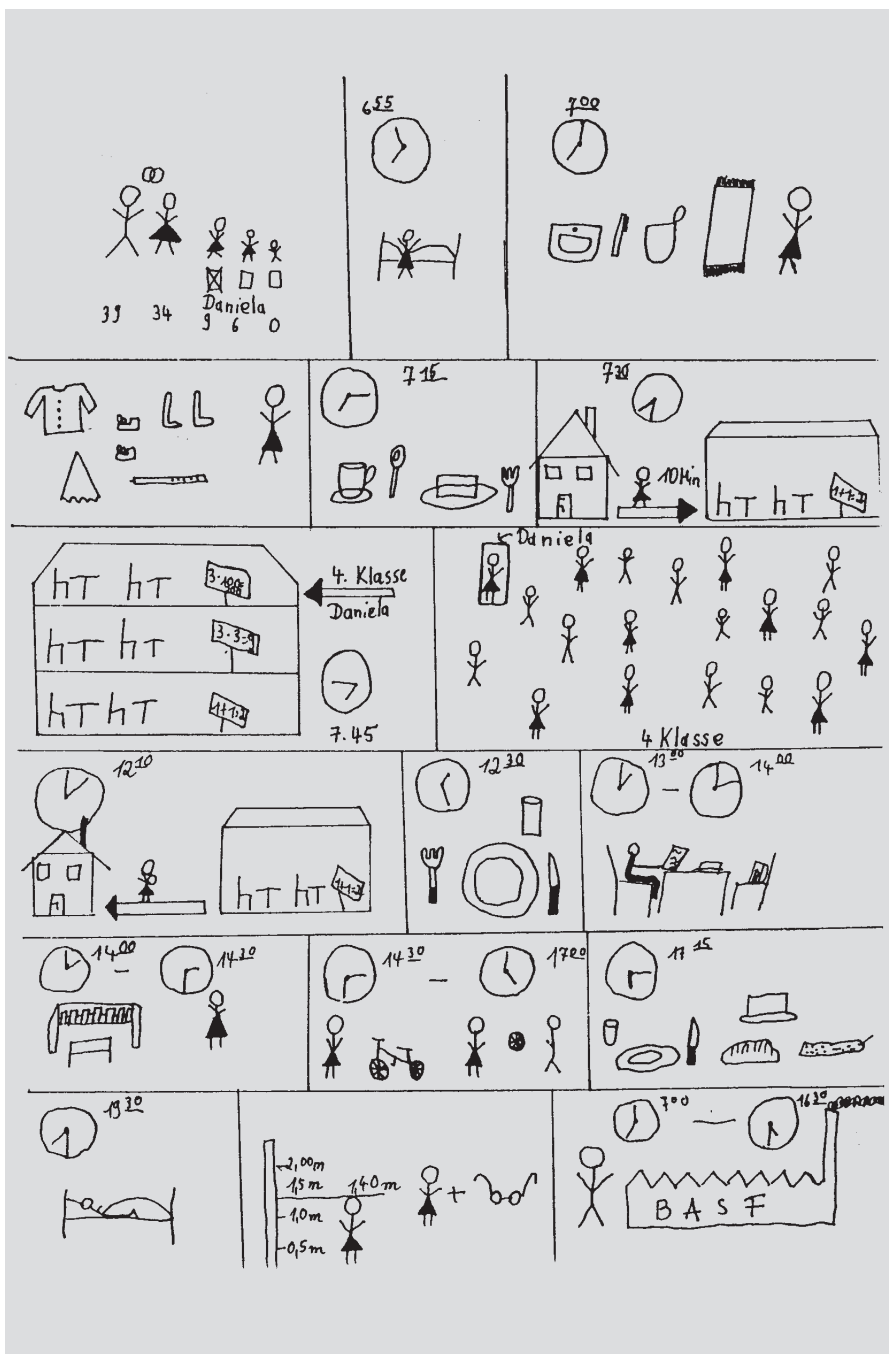 6 55
7 00
Daniela
39 34 9 6 0
7 15
7 30
10 Min
1+1=2
3·3=9
1+1=2
4. Klasse
Daniela
7.45
Daniela
4 Klasse
12 10
1+1=2
12 30
13 00 – 14 00
14 00 – 14 30
14 30 – 17 00
17 15
19 30
2,00m
1,5m 1,40m
1,0m
0,5m
+
7 00 – 16 30
BASF